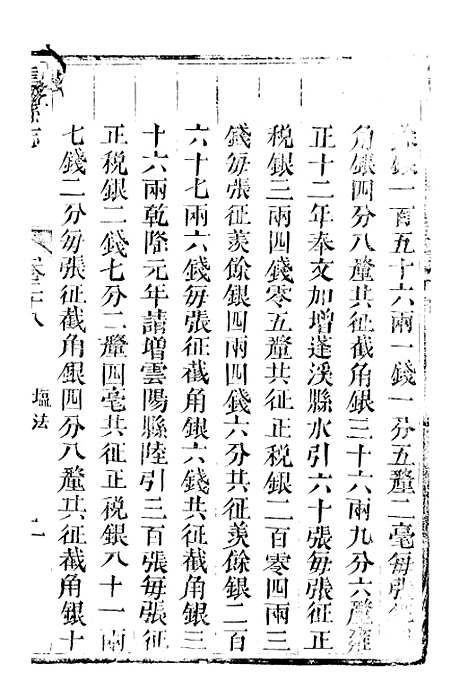 銀一百五十六兩一錢一分五釐二毫每張
角銀四分八釐共征截角銀三十六兩九分六釐雍
正十二年奉文加增蓬溪縣水引六十張每張征正
稅銀三兩四錢零五釐共征正稅銀二百零四兩三
錢每張征羨餘銀四兩四錢六分共征羨餘銀二百
六十七兩六錢每張征截角銀六錢共征截角銀三
十六兩乾隆元年請增雲陽縣陸引三百張每張征
正稅銀二錢七分二釐四毫共征正稅銀八十一兩
七錢二分每張征截角銀四分八釐共征截角銀十
卷二十八 塩法